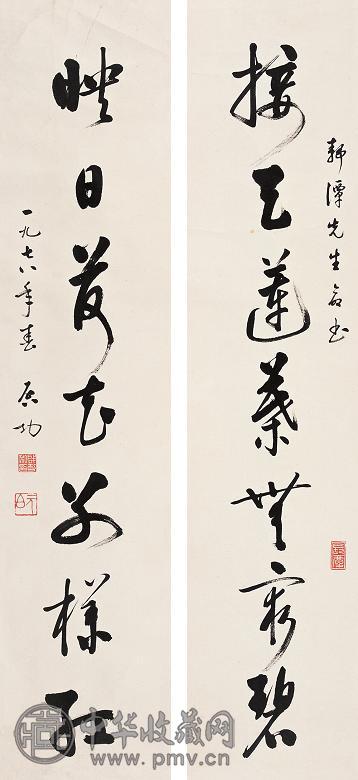 潭先生
接天蓮葉無窮碧
映日荷花别樣紅
一九七八年春 启功
中华收藏网
www.pmv.cn